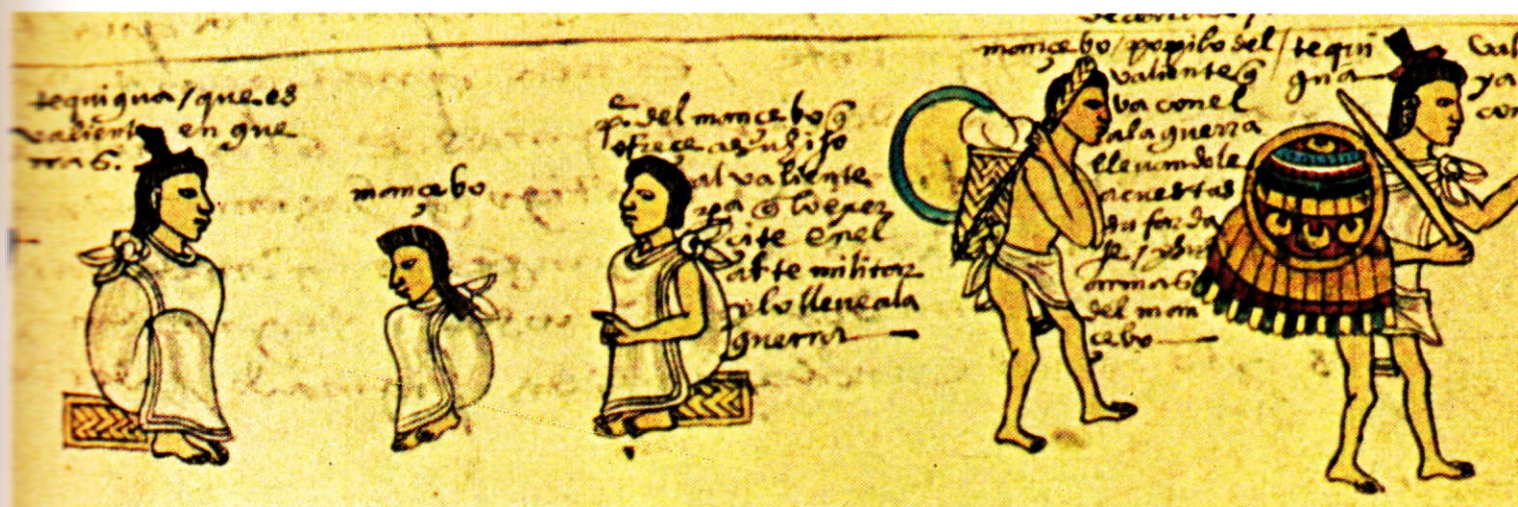 tequigua / que es
valiente en gue
rras.
mançebo
pe. del mançebo q
ofreçe a su hijo
al valiente
pa q lo exer
çite en el
arte militar
y lo lleve a la
guerra
mançebo / popilo del
valiente q
va con el
a la guerra
llevandole
acuestas
su farda
je / y las
armas
del man
çebo
tequi
gua
val
ya
con